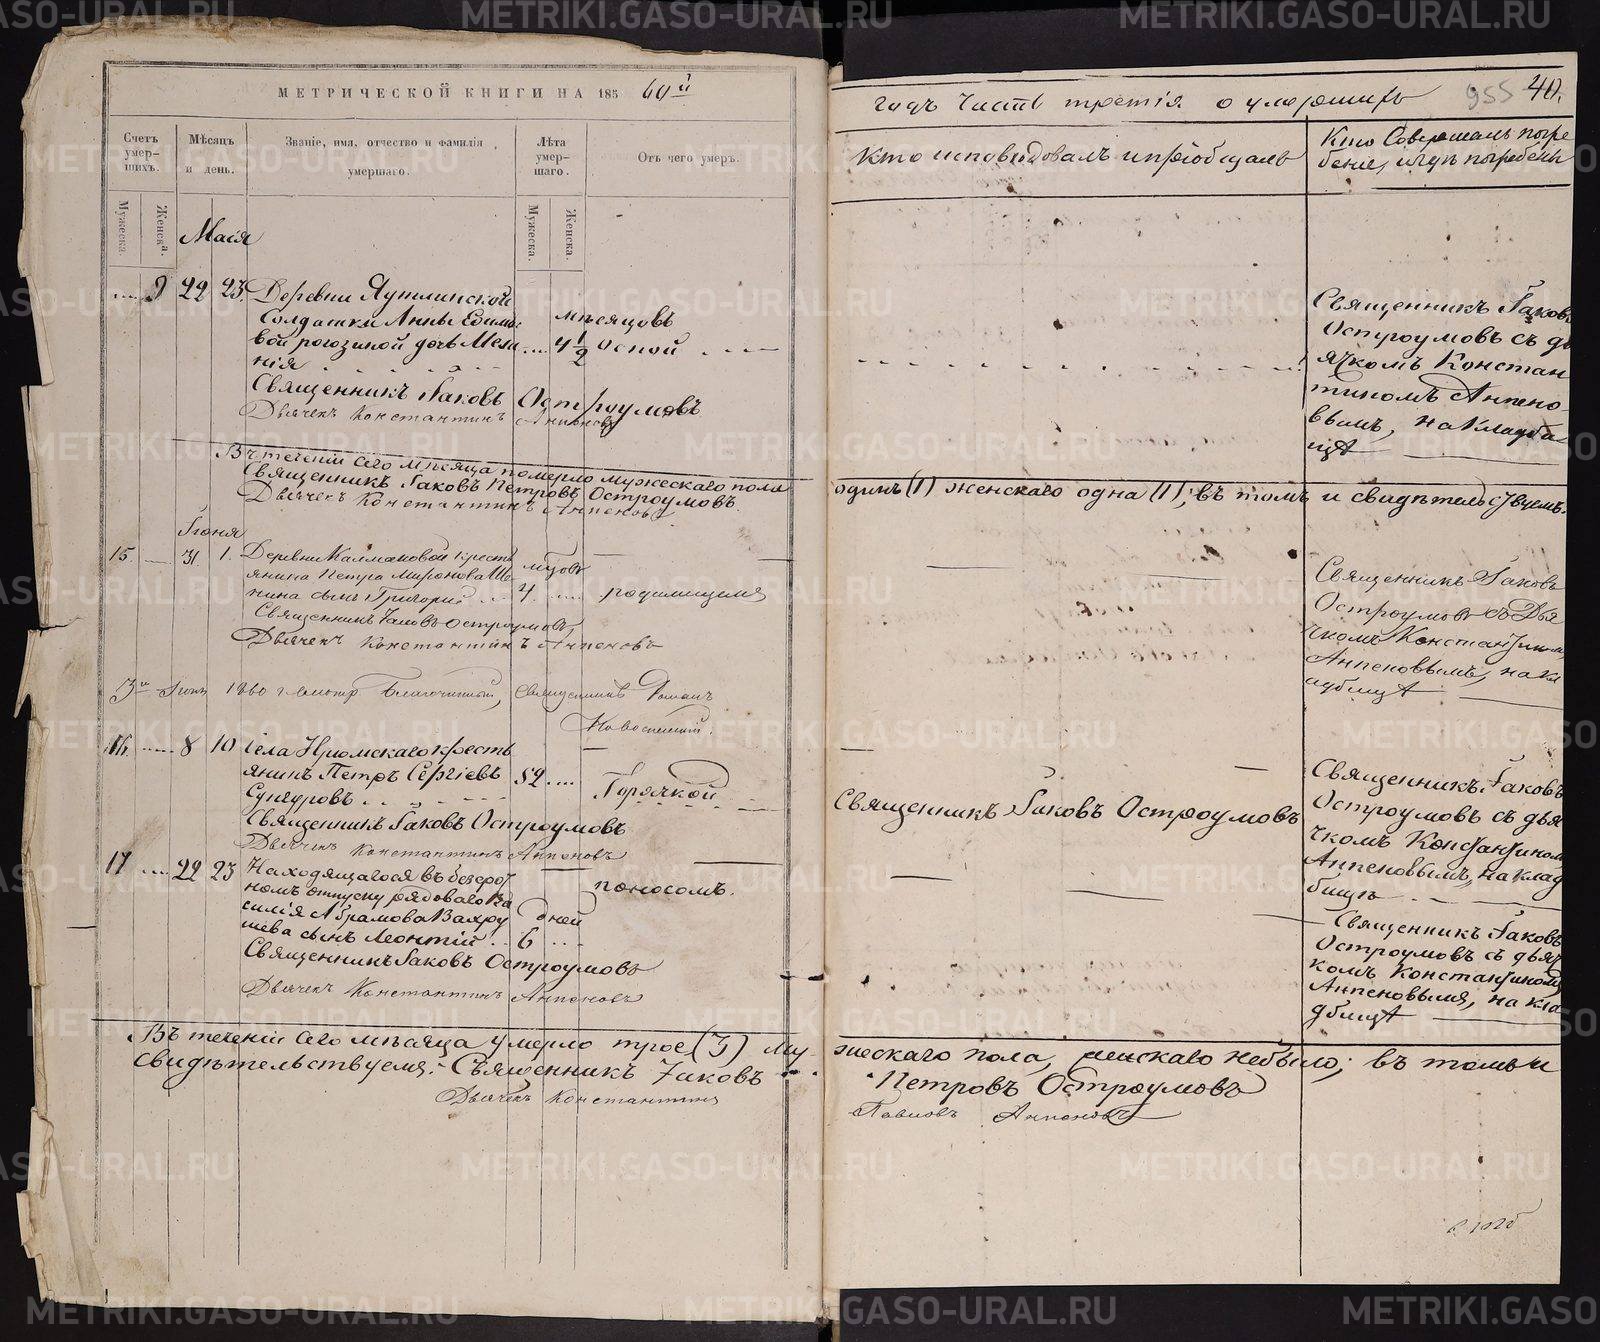 МЕТРИЧЕСКОЙ КНИГИ НА 185 60й
годъ Часть третія о умершихъ
955 40.
Счетъ умер-шихъ.
Мѣсяцъ и день.
Званіе, имя, отчество и фамилія умершаго.
Лѣта умер-шаго.
Отъ чего умеръ.
Кто исповѣдовалъ и пріобщалъ
Кто Совершалъ погре
беніе, и гдѣ погребены
Мужеска.
Женска.
Мужеска.
Женска.
Маія
9 22 23. Деревни
Солдатки Анны Ефимо
вой рогозиной дочь Мела
нія
мѣсяцовъ
4 1/2 Оспой
Священникъ Іаковъ Остроумовъ
Дьячекъ Константинъ Анпеновъ
Священникъ Іаковъ
Остроумовъ съ дь
ячкомъ Констан
тиномъ Анпено
вымъ, на Кладби
щѣ
Въ теченіи сего мѣсяца померло мужескаго пола
одинъ (1) женскаго одна (1); въ томъ и свидѣтельствуемъ.
Священникъ Іаковъ Петровъ Остроумовъ
Дьячекъ Константинъ Анпеновъ
Іюня
15. 31. 1. Деревни Калмаковой крестъ
янина Петра Миронова
нина сынъ Григорій
мцовъ
4. родимцемъ
Священникъ Іаковъ Остроумовъ
Дьячекъ Константинъ Анпеновъ
Священникъ Іаковъ
Остроумовъ съ Дья
чкомъ Константиномъ
Анпеновымъ, на Кл
адбищѣ
3го Іюня 1860 г смотр Благочинный, Священникъ Романъ
16. 8 10 Села крестъ
янинъ Петръ Сергіевъ
Сунгуровъ
52
Горячкой
Священникъ Іаковъ Остроумовъ
Дьячекъ Константинъ Анпеновъ
Священникъ Іаковъ Остроумовъ
Священникъ Іаковъ
Остроумовъ съ дья
чкомъ Константиномъ
Анпеновымъ, на клад
бищѣ
17 22 23 Находящагося въ безсроч
номъ отпуску рядоваго Ва
силія Абрамова Вахру
шева сынъ Леонтій
дней
6
поносомъ.
Священникъ Іаковъ Остроумовъ
Дьячекъ Константинъ Анпеновъ
Священникъ Іаковъ
Остроумовъ съ дьяч
комъ Константиномъ
Анпеновымъ, на кла
дбищѣ
Въ теченіи сего мѣсяца умерло трое (3) му-
жескаго пола, женскаго небыло; въ томъ и
свидѣтельствуемъ: Священникъ Іаковъ
Петровъ Остроумовъ
Дьячекъ Константинъ
Павловъ Анпеновъ
METRIKI.GASO-URAL.RU